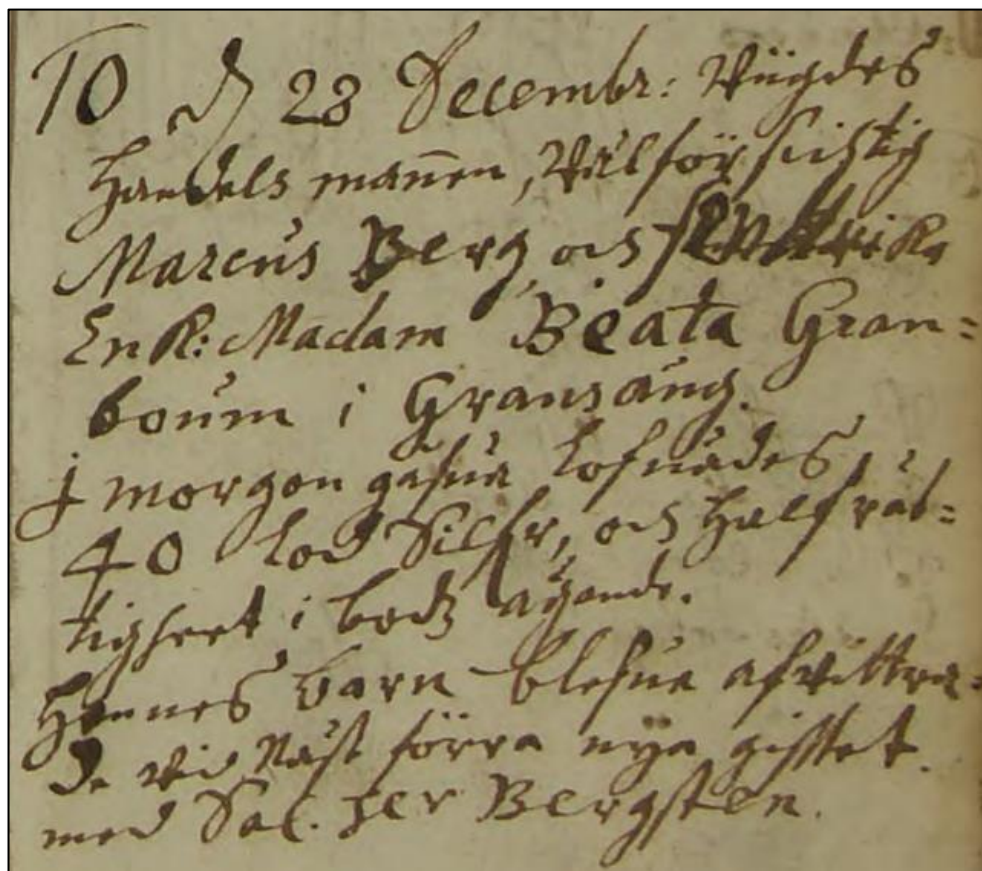 10 d 28 Decembr: Wigdes
Handels mannen, Wälförsichtig
Marcus Berg, och
EnK: Madam Beata Gran=
boum i Gransäng.
J morgongåfua lofuades
40 lod Silfr, och Half rät=
tigheet i bodz ägande.
Hennes barn blefue afwittra=
de vid näst förra nya giftet
med Sal. Her Bergsten.